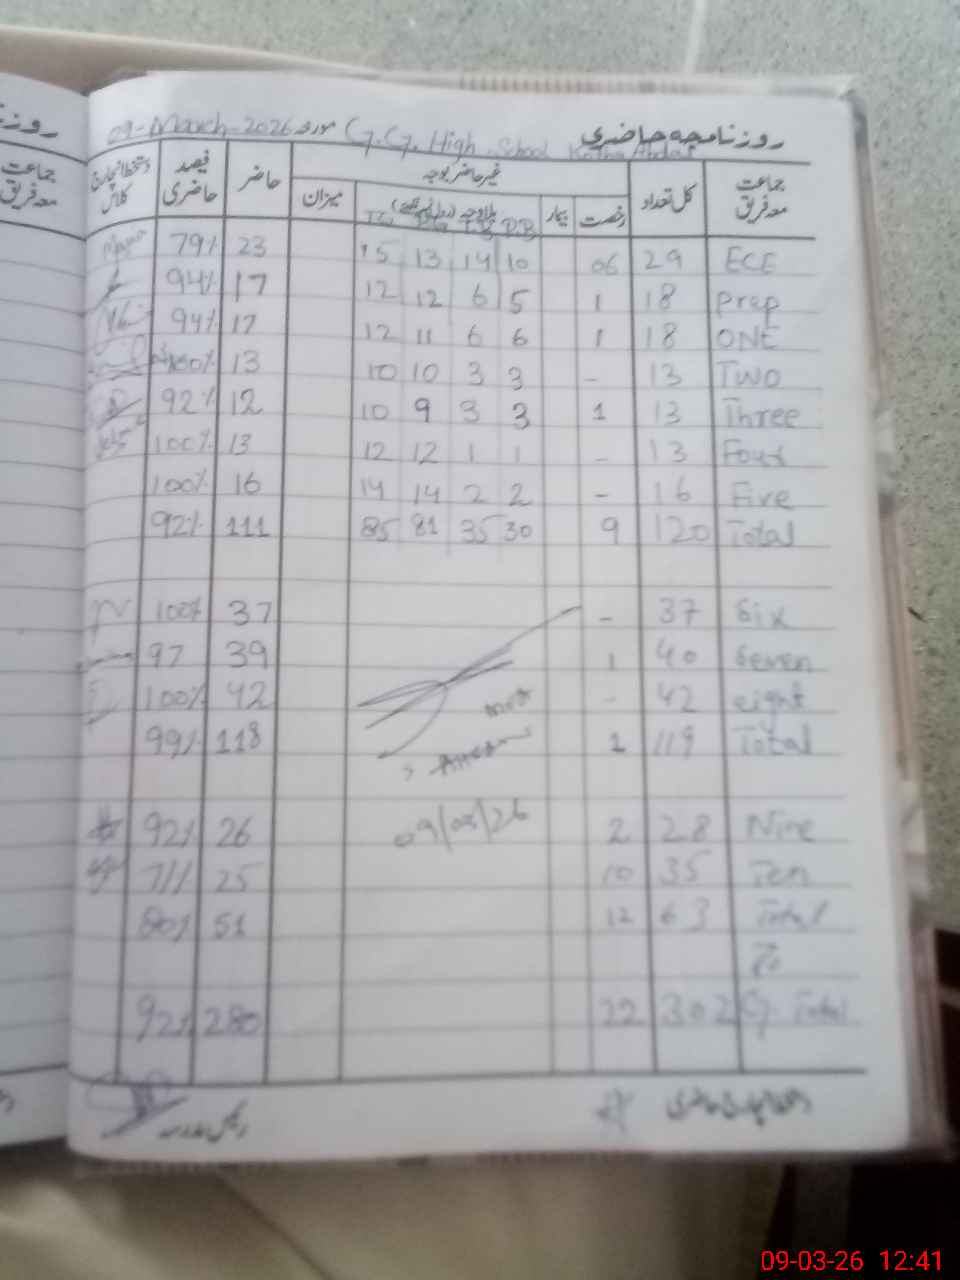 روزنامچہ حاضری G.G. High School مورخہ 09-March-2026
جماعت معہ فریق کل تعداد غیر حاضر بوجہ حاضر فیصد حاضری دستخط انچارج کلاس
رخصت بیمار بلاوجہ میزان
TG PG TB PB
ECE 29 06 10 14 13 15 23 79%
Prep 18 1 5 6 12 12 17 94%
ONE 18 1 6 6 11 12 17 94%
Two 13 - 3 3 10 10 13 100%
Three 13 1 3 3 9 10 12 92%
Four 13 - 1 1 12 12 13 100%
Five 16 - 2 2 14 14 16 100%
Total 120 9 30 35 81 85 111 92%
Six 37 - 37 100%
Seven 40 1 39 97
eight 42 - 42 100%
Total 119 1 118 99%
09/03/26
Nine 28 2 26 92%
Ten 35 10 25 71%
Total 63 12 51 80%
To
G. Total 302 22 280 92%
رئیس مدرسہ
جماعت
معہ فریق
09-03-26 12:41